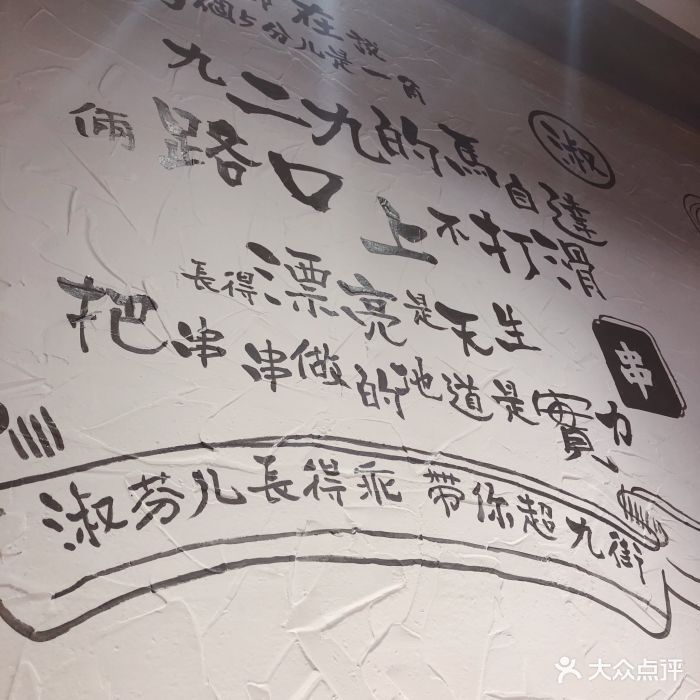 在說
個5分儿是一角
九二九的馬自達
倆路口上不打滑
淑
長得漂亮是天生
把串串做的地道是實力
串
淑芬儿長得乖 帶你超九街
大众点评